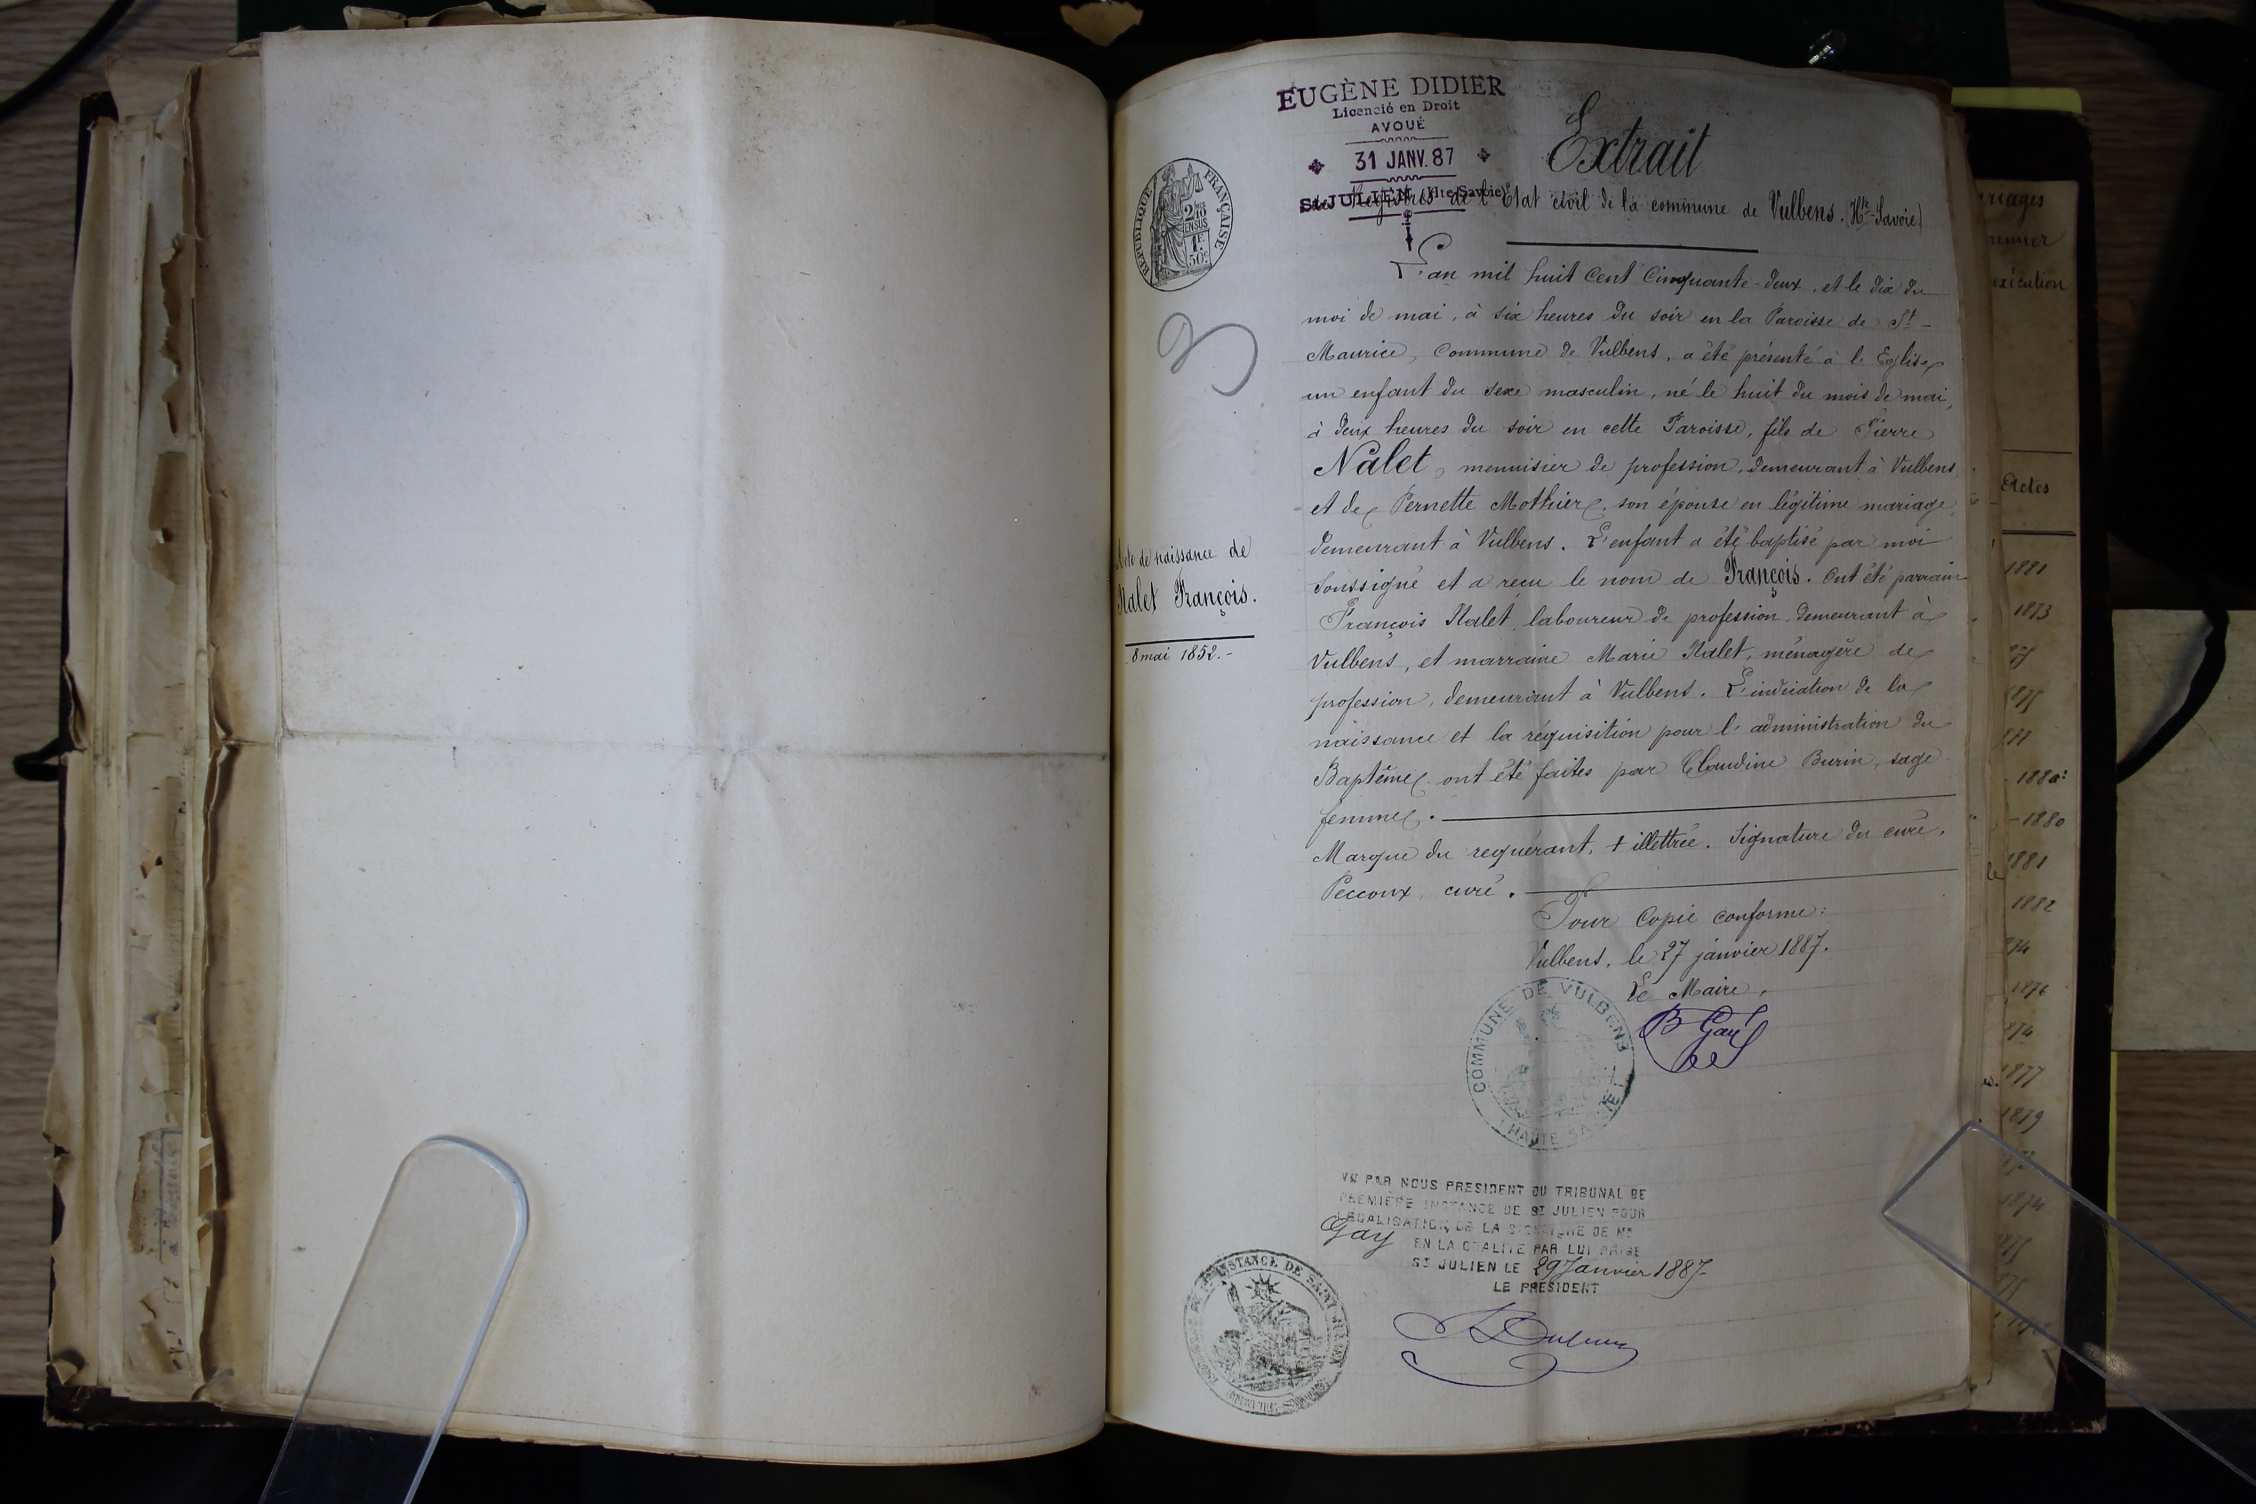 EUGÈNE DIDIER
Licencié en Droit
AVOUÉ
31 JANV. 87
St JULIEN (Hte-Savoie)
RÉPUBLIQUE FRANÇAISE
2/10
EN SUS
1F
50c
Extrait
des Registres de l'Etat civil de la commune de Vulbens. (Hte-Savoie)
L'an mil huit cent cinquante-deux, et le dix du
moi de mai, à six heures du soir en la Paroisse de St-
Maurice, commune de Vulbens, a été présenté à l'Eglise
un enfant du sexe masculin, né le huit du mois de mai,
à deux heures du soir en cette Paroisse, fils de Pierre
Nalet, menuisier de profession, demeurant à Vulbens
et de Pernette Mothier, son épouse en légitime mariage,
demeurant à Vulbens. L'enfant a été baptisé par moi
soussigné et a reçu le nom de François. Ont été parrain
François Nalet, laboureur de profession, demeurant à
Vulbens, et marraine Marie Nalet, ménagère de
profession, demeurant à Vulbens. L'indication de la
naissance et la réquisition pour l'administration du
Baptême ont été faites par Claudine Burin, sage
femme.
Marque du requérant, + illettrée. Signature du curé,
Peccoux, curé.
Acte de naissance de
Nalet François.
8 mai 1852.-
Pour Copie conforme:
Vulbens, le 27 janvier 1887.
Le Maire,
B Gay
COMMUNE DE VULBENS
HAUTE SAVOIE
VU PAR NOUS PRESIDENT DU TRIBUNAL DE
PREMIÈRE INSTANCE DE St JULIEN POUR
LEGALISATION DE LA SIGNATURE DE Mr
Gay EN LA QUALITE PAR LUI PRISE
St JULIEN LE 29 Janvier 1887
LE PRESIDENT
INSTANCE DE SAINT JULIEN
exécution
Actes
1881
1873
1880
1881
1882
1876
1877
1879